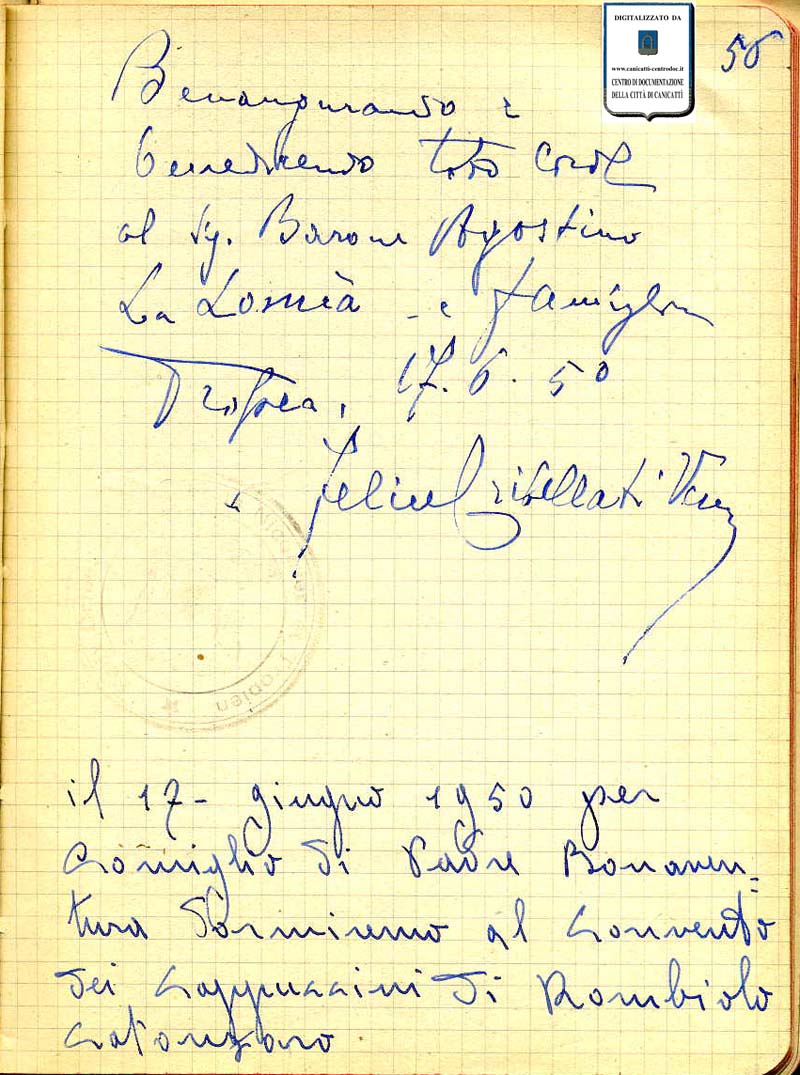 DIGITALIZZATO DA
www.canicatti-centrodoc.it
CENTRO DI DOCUMENTAZIONE
DELLA CITTÀ DI CANICATTÌ
56
Benaugurando e
benedicendo toto corde
al Sig. Barone Agostino
La Lomia e famiglia
Tropea, 17.6.50
+ Felice Cribellati Vescovo
il 17- giugno 1950 per
consiglio di Padre Bonaven=
tura dormiremo al convento
dei cappuccini di Rombiolo
Catanzaro